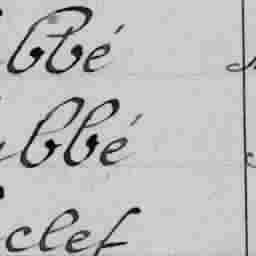 bbé
bbé
clef